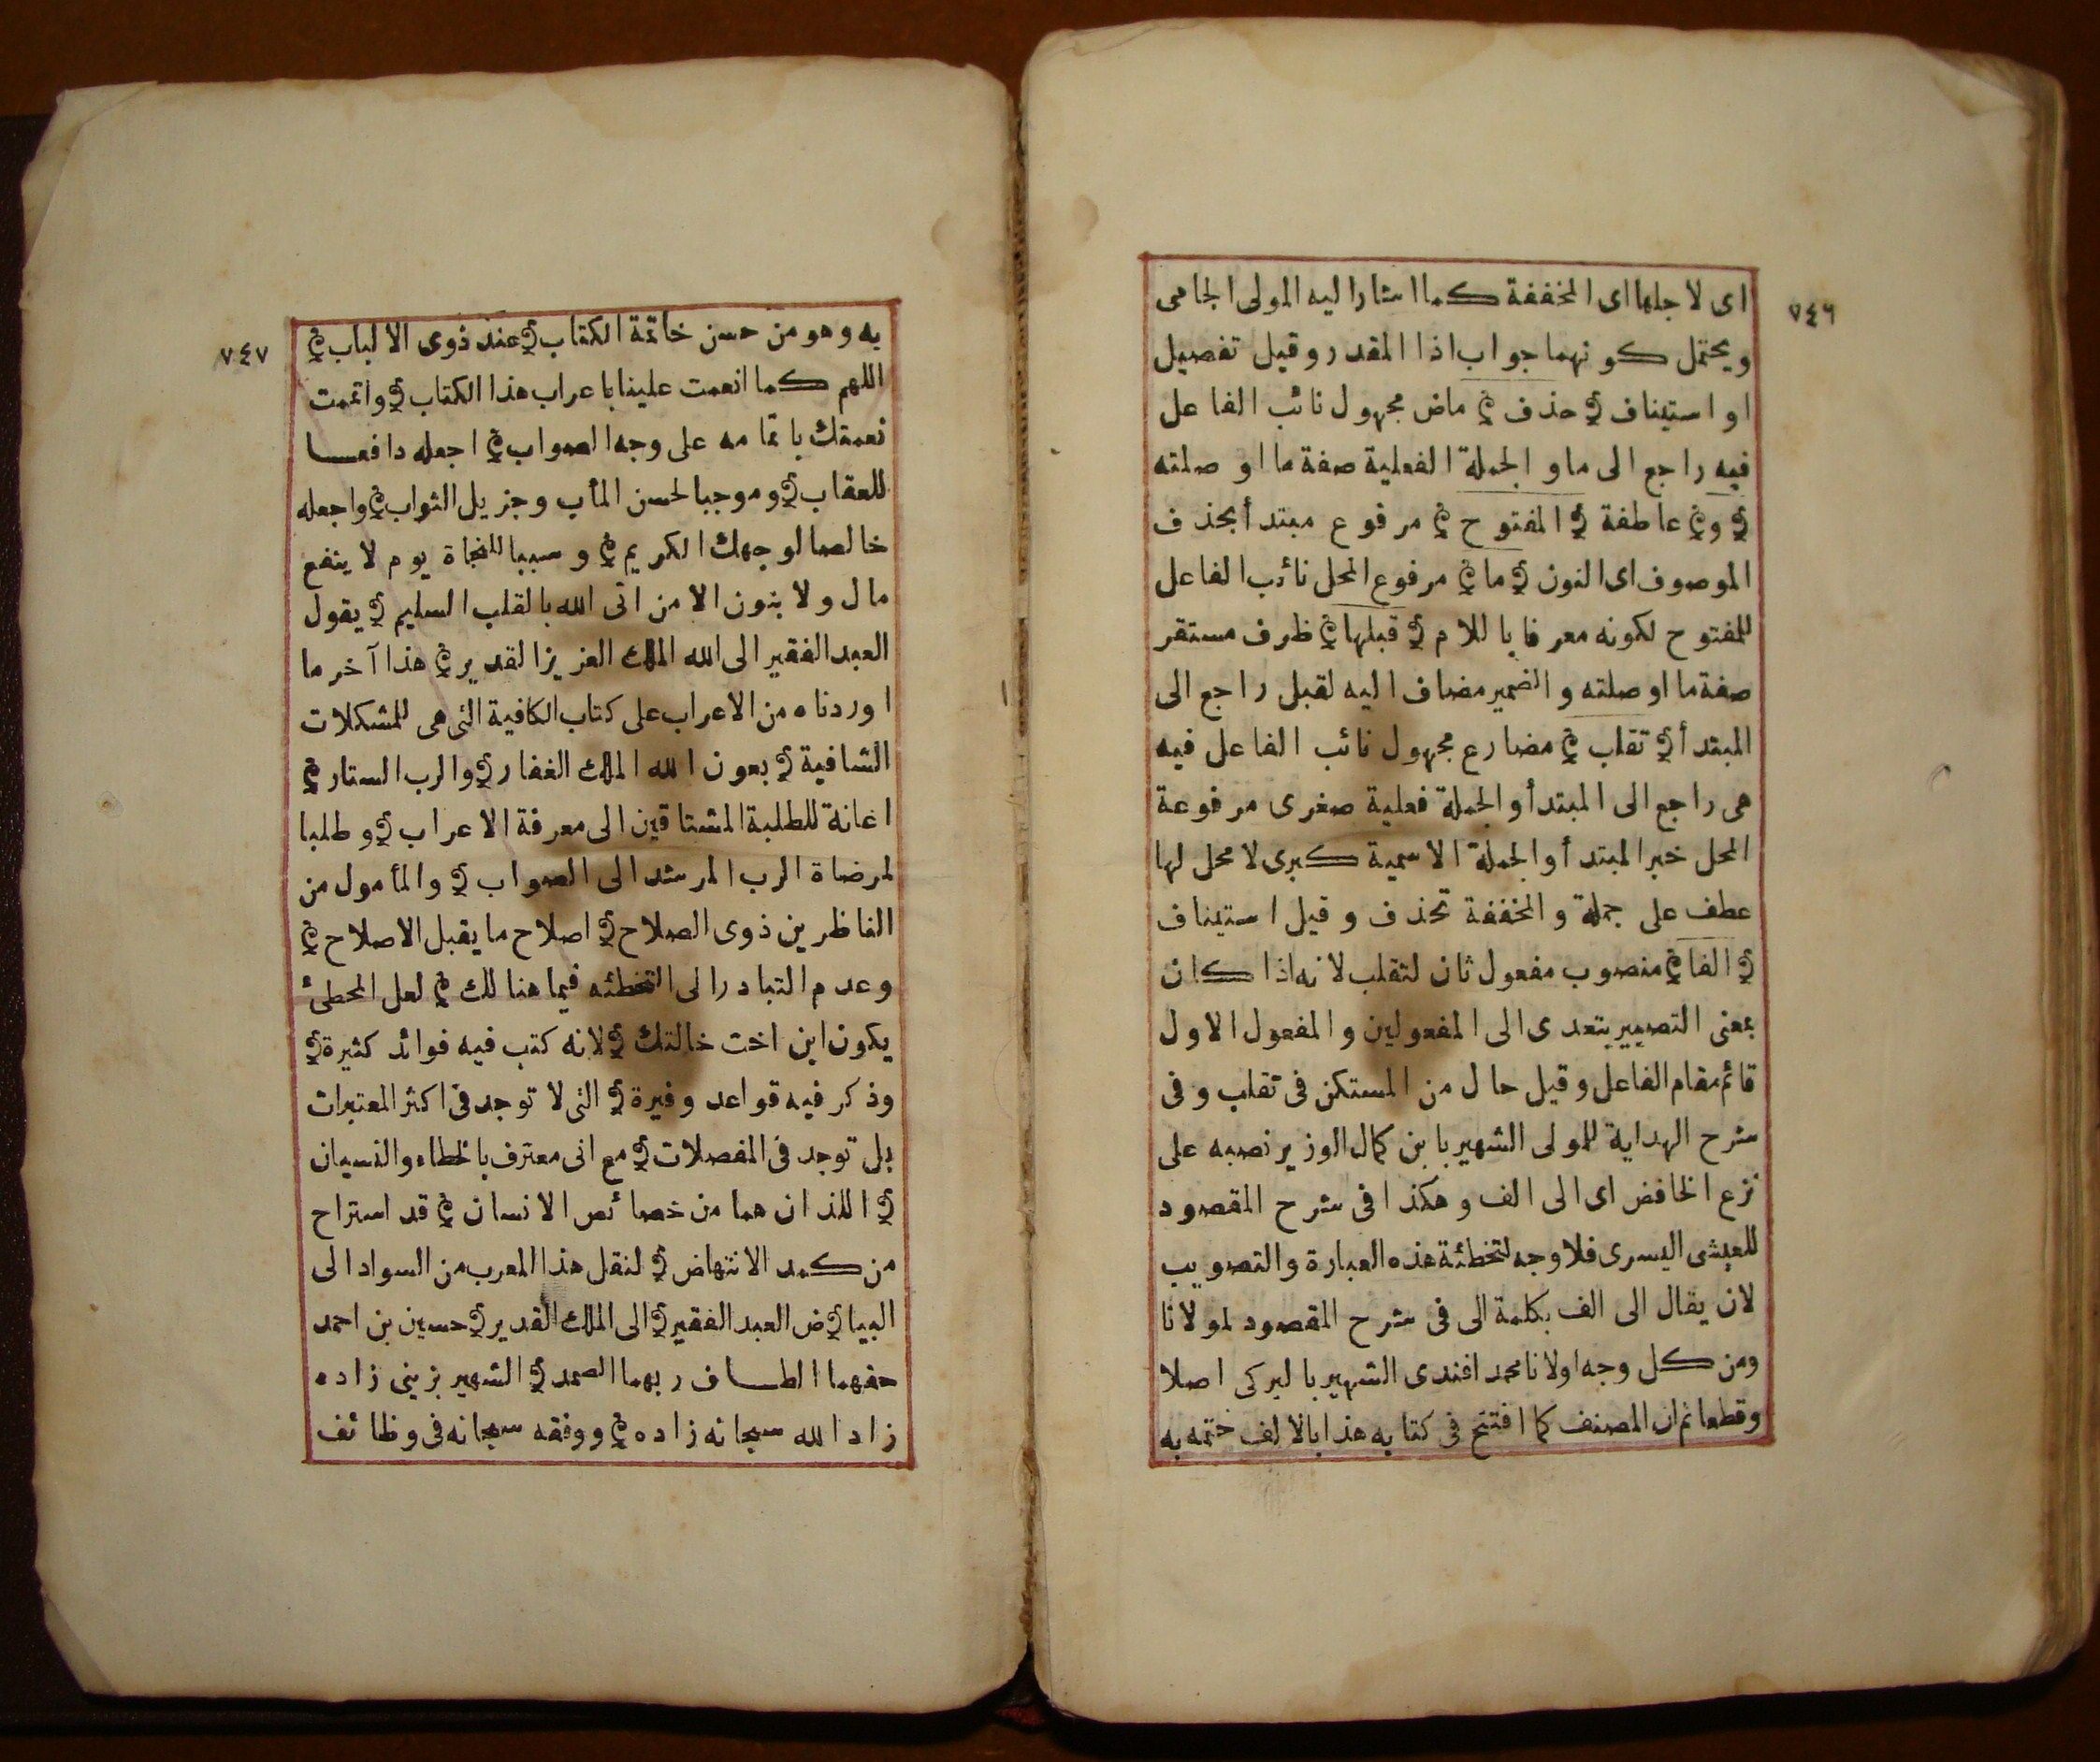 ٧٤٦
اى لاجلها اى المخففة كما اشار اليه المولى الجامى
ويحتمل كونهما جواب اذا المقدر وقيل تفصيل
او استيناف حذف ماض مجهول نائب الفاعل
فيه راجع الى ما والجملة الفعلية صفة ما او صلته
و عاطفة المفتوح مرفوع مبتدأ بحذف
الموصوف اى النون ما مرفوع المحل نائب الفاعل
للمفتوح لكونه معرفا باللام قبلها ظرف مستقر
صفة ما او صلته والضمير مضاف اليه لقبل راجع الى
المبتدأ تقلب مضارع مجهول نائب الفاعل فيه
هى راجع الى المبتدأ والجملة فعلية صغرى مرفوعة
المحل خبر المبتدأ والجملة الاسمية كبرى لا محل لها
عطف على جملة والمخففة تحذف وقيل استيناف
الفا منصوب مفعول ثان لتقلب لانه اذا كان
بمعنى التصيير يتعدى الى المفعولين والمفعول الاول
قائم مقام الفاعل وقيل حال من المستكن فى تقلب وفى
شرح الهداية للمولى الشهير بابن كمال الوزير نصبه على
نزع الخافض اى الى الف وهكذا فى شرح المقصود
للعيشى اليسرى فلا وجه لتخطئة هذه العبارة والتصويب
لان يقال الى الف بكلمة الى فى شرح المقصود لمولانا
ومن كل وجه اولانا محمد افندى الشهير بالبركى اصلا
وقطعا ثم ان المصنف كما افتتح فى كتابه هذا بالالف ختمه به
٧٤٧
به وهو من حسن خاتمة الكتاب عند ذوى الالباب
اللهم كما انعمت علينا باعراب هذا الكتاب واتممت
نعمتك باتمامه على وجه الصواب اجعله دافعا
للعقاب وموجبا لحسن المأب وجزيل الثواب واجعله
خالصا لوجهك الكريم وسببا للنجاة يوم لا ينفع
مال ولا بنون الا من اتى الله بالقلب السليم يقول
العبد الفقير الى الله الملك العزيز القدير هذا آخر ما
اوردناه من الاعراب على كتاب الكافية التى هى للمشكلات
الشافية بعون الله الملك الغفار والرب الستار
اغانة للطلبة المشتاقين الى معرفة الاعراب وطلبا
لمرضاة الرب المرشد الى الصواب والمأمول من
الناظرين ذوى الصلاح اصلاح ما يقبل الاصلاح
وعدم التبادر الى التخطئه فيما هنالك لعل المخطئ
يكون ابن اخت خالتك لانه كتب فيه فوائد كثيرة
وذكر فيه قواعد وفيرة التى لا توجد فى اكثر المعتبرات
بل توجد فى المفصلات مع انى معترف بالخطاء والنسيان
اللذان هما من خصائص الانسان قد استراح
من كمد الانتهاض لنقل هذا المعرب من السواد الى
البياض العبد الفقير الى الملك القدير حسين بن احمد
حفهما الطاف ربهما الصمد الشهير بزينى زاده
زاد الله سبحانه زاده ووفقه سبحانه فى وظائف